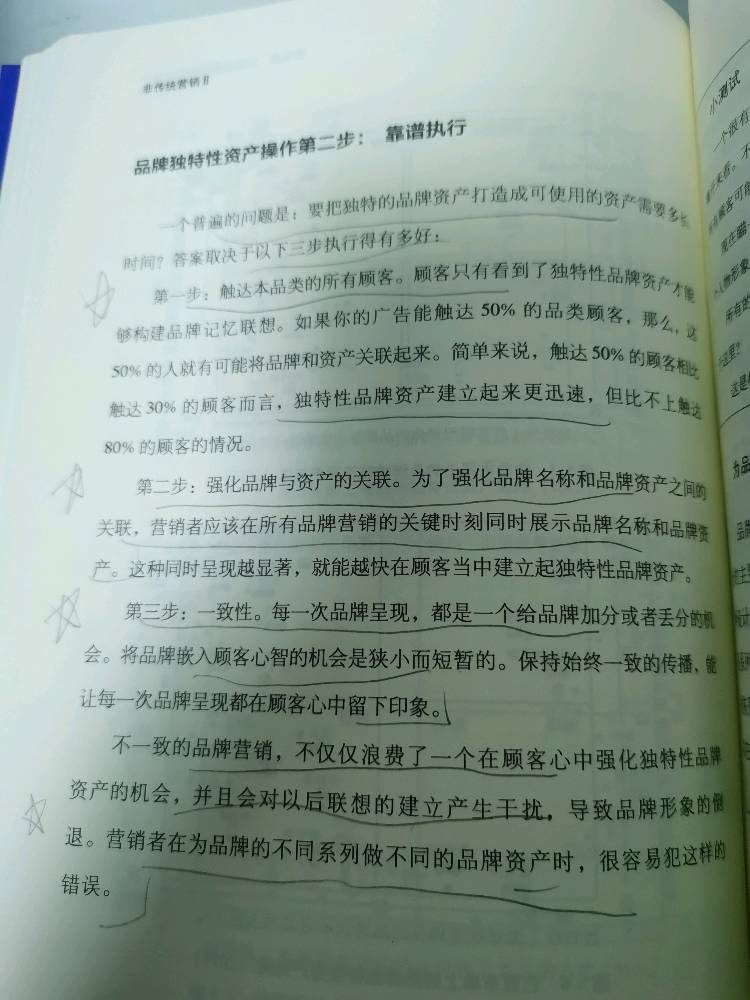 非传统营销Ⅱ
品牌独特性资产操作第二步： 靠谱执行
一个普遍的问题是：要把独特的品牌资产打造成可使用的资产需要多长
时间？答案取决于以下三步执行得有多好：
第一步：触达本品类的所有顾客。顾客只有看到了独特性品牌资产才能
够构建品牌记忆联想。如果你的广告能触达 50% 的品类顾客，那么，这
50% 的人就有可能将品牌和资产关联起来。简单来说，触达 50% 的顾客相比
触达 30% 的顾客而言，独特性品牌资产建立起来更迅速，但比不上触达
80% 的顾客的情况。
第二步：强化品牌与资产的关联。为了强化品牌名称和品牌资产之间的
关联，营销者应该在所有品牌营销的关键时刻同时展示品牌名称和品牌资
产。这种同时呈现越显著，就能越快在顾客当中建立起独特性品牌资产。
第三步：一致性。每一次品牌呈现，都是一个给品牌加分或者丢分的机
会。将品牌嵌入顾客心智的机会是狭小而短暂的。保持始终一致的传播，能
让每一次品牌呈现都在顾客心中留下印象。
不一致的品牌营销，不仅仅浪费了一个在顾客心中强化独特性品牌
资产的机会，并且会对以后联想的建立产生干扰，导致品牌形象的倒
退。营销者在为品牌的不同系列做不同的品牌资产时，很容易犯这样的
错误。
小测试
一个很有
现在瞄一
个人物形象
所有的
这里？
为品
品牌